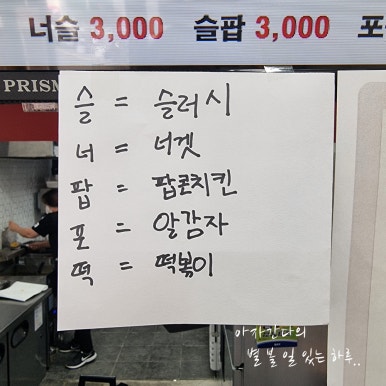 너슬 3,000 슬팝 3,000 포
PRISM
슬 = 슬러시
너 = 너겟
팝 = 팝콘치킨
포 = 알감자
떡 = 떡볶이
아자간다의
별 볼 일 있는 하루..